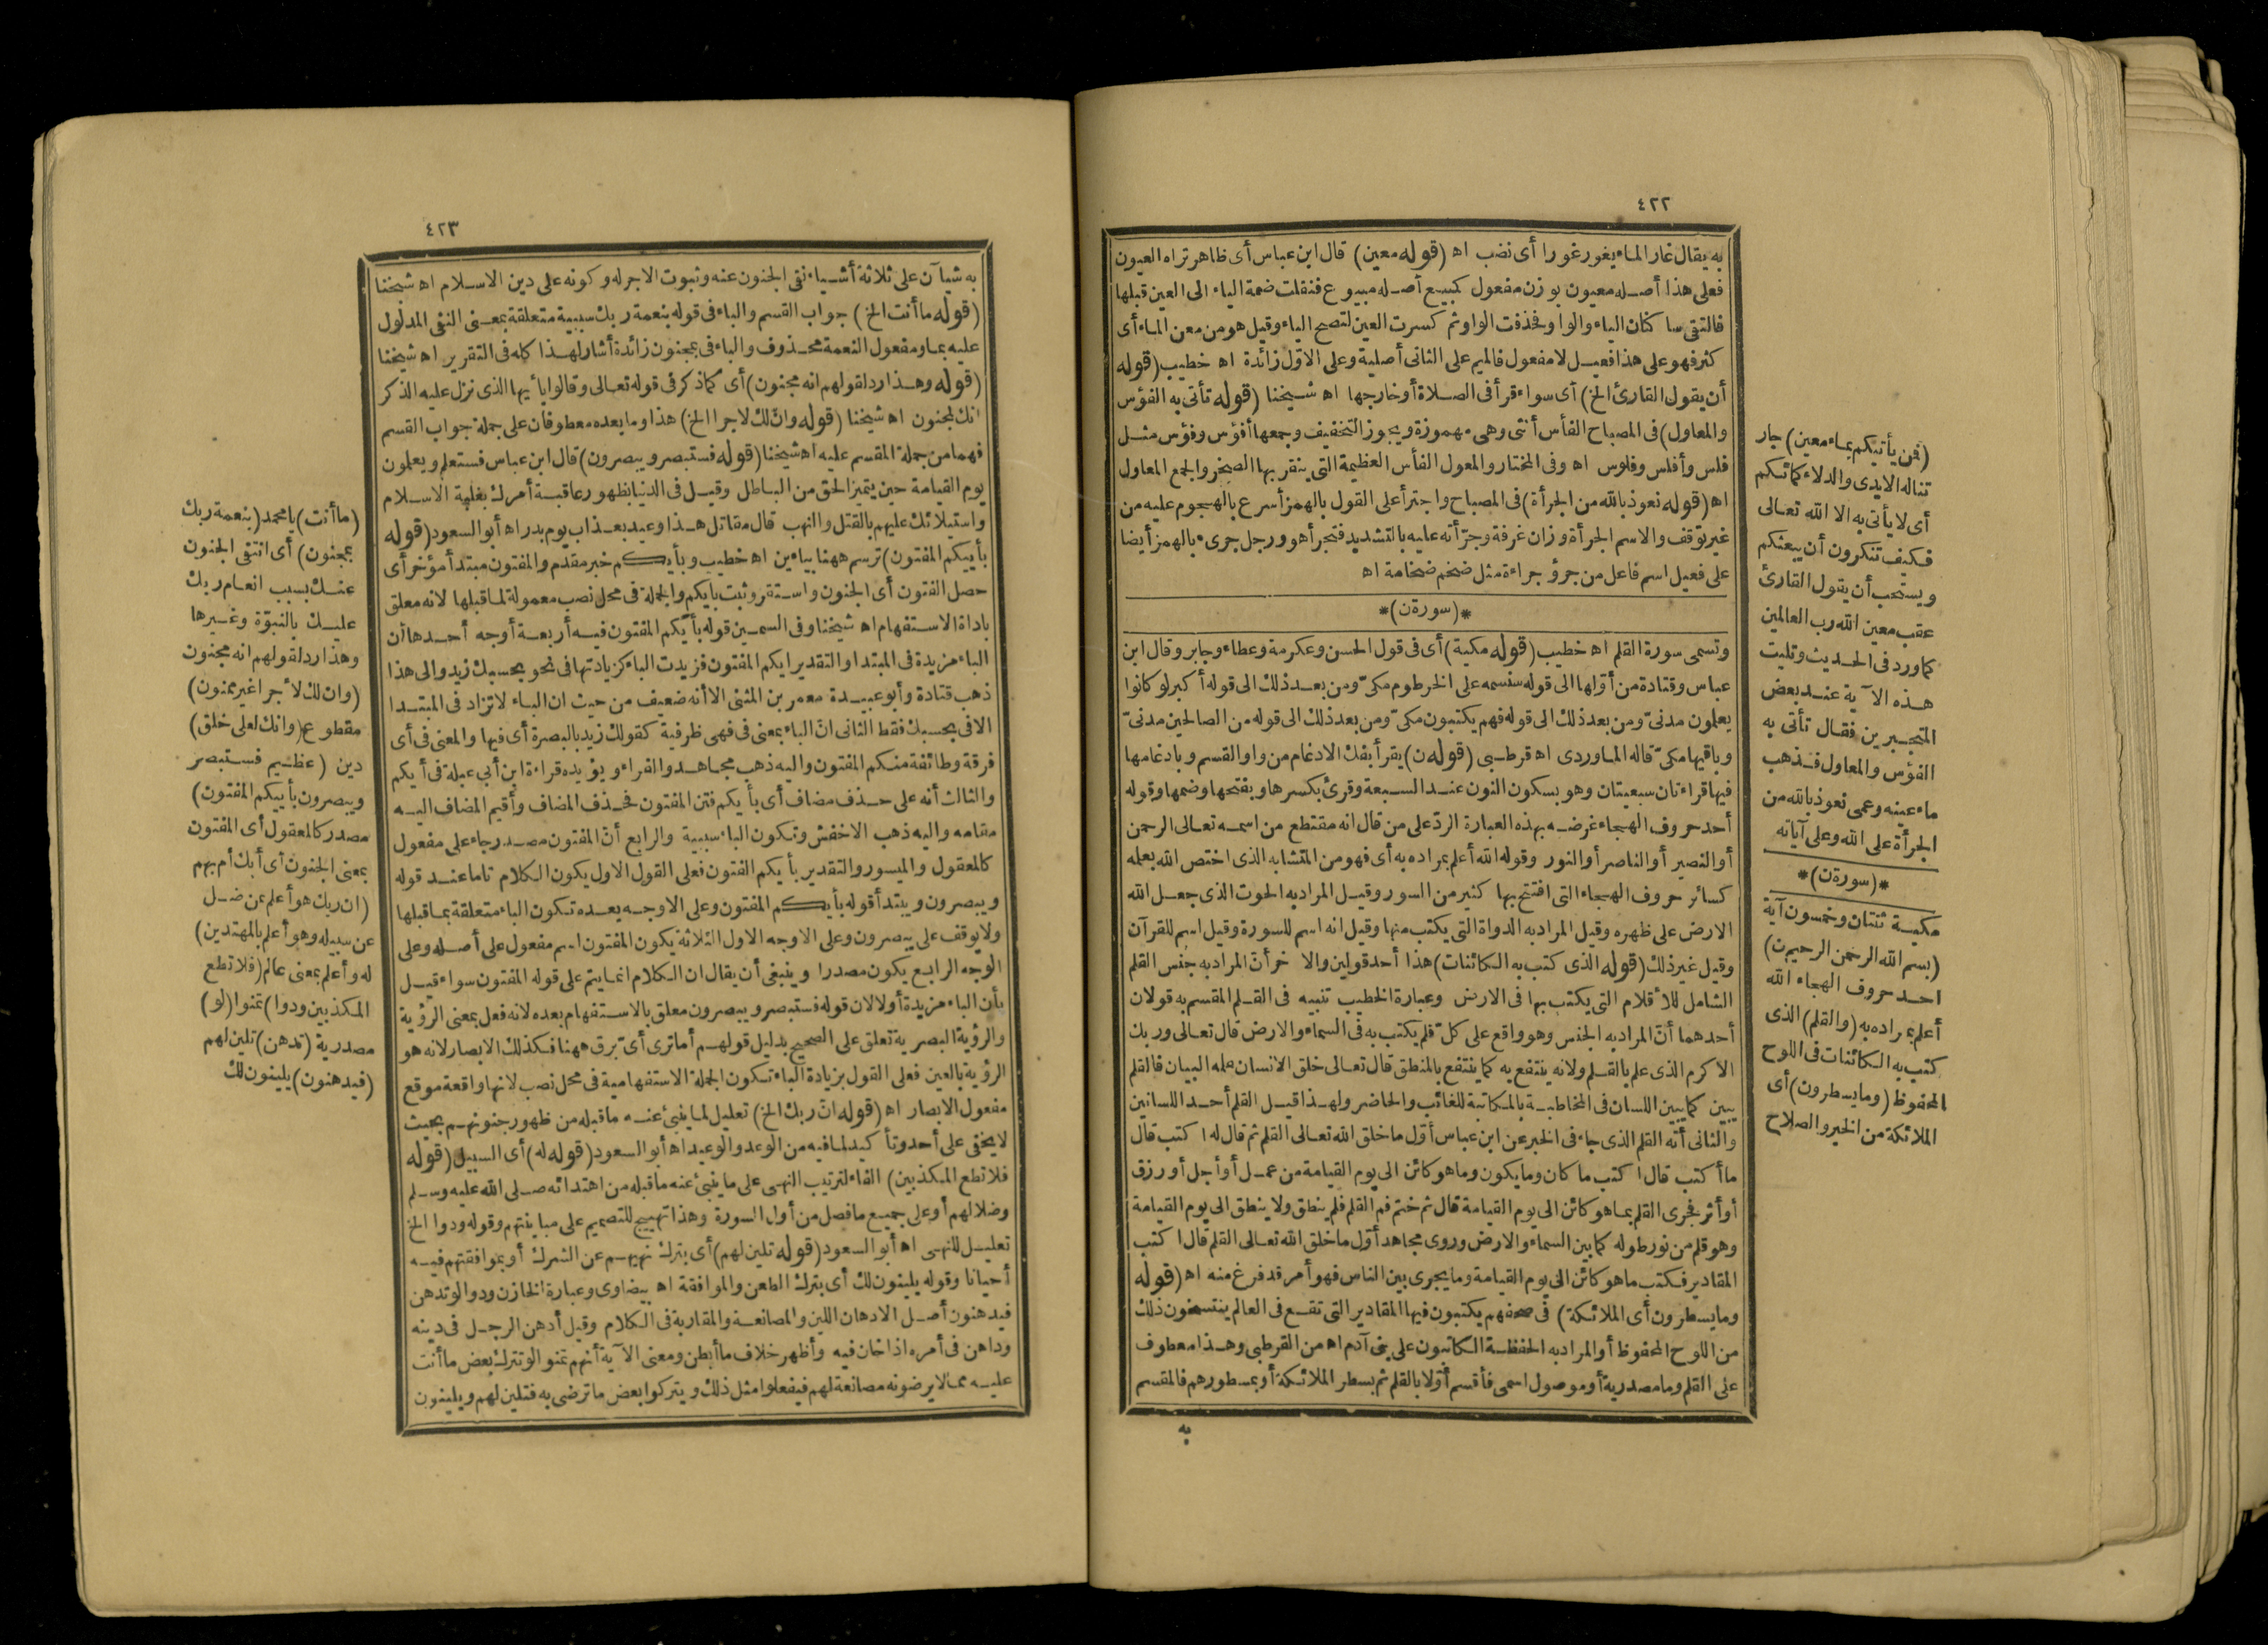 ٤٢٢
به يقال غار الماء يغور غورا أى نضب اه (قوله معين) قال ابن عباس أى ظاهر تراه العيون
فعلى هذا أصله معيون بوزن مفعول كمبيع أصله مبيوع فنقلت ضمة الياء الى العين قبلها
فالتقى ساكنان الياء والواو فحذفت الواو ثم كسرت العين لتصح الياء وقيل هو من معن الماء أى
كثر فهو على هذا فعيل لا مفعول فالميم على الثانى أصلية وعلى الاول زائدة اه خطيب (قوله
أن يقول القارئ الخ) أى سواء قرأ فى الصلاة أو خارجها اه شيخنا (قوله تأتى به الفؤس
والمعاول) فى المصباح الفأس أنثى وهى مهموزة ويجوز التخفيف وجمعها أفؤس وفؤس مثل
فلس وأفلس وفلوس اه وفى المختار والمعول الفأس العظيمة التى ينقر بها الصخر والجمع المعاول
اه (قوله نعوذ بالله من الجرأة) فى المصباح واجترأ على القول بالهمز أسرع بالهجوم عليه من
غير توقف والاسم الجرأة وزان غرفة وجرّأته عليه بالتشديد فتجرأ هو ورجل جرىء بالهمز أيضا
على فعيل اسم فاعل من جرؤ جراءة مثل ضخم ضخامة اه
*(سورة ن)*
وتسمى سورة القلم اه خطيب (قوله مكية) أى فى قول الحسن وعكرمة وعطاء وجابر وقال ابن
عباس وقتادة من أولها الى قوله سنسمه على الخرطوم مكىّ ومن بعد ذلك الى قوله أكبر لو كانوا
يعلمون مدنىّ ومن بعد ذلك الى قوله فهم يكتبون مكىّ ومن بعد ذلك الى قوله من الصالحين مدنىّ
وباقيها مكىّ قاله الماوردى اه قرطبى (قوله ن) يقرأ بفك الادغام من واو القسم وبادغامها
فيها قراءتان سبعيتان وهو بسكون النون عند السبعة وقرئ بكسرها وبفتحها وضمها وقوله
أحد حروف الهجاء غرضه بهذه العبارة الردّ على من قال انه مقتطع من اسمه تعالى الرحمن
أو النصير أو الناصر أو النور وقوله الله أعلم بمراده به أى فهو من المتشابه الذى اختص الله بعلمه
كسائر حروف الهجاء التى افتتح بها كثير من السور وقيل المراد به الحوت الذى جعل الله
الارض على ظهره وقيل المراد به الدواة التى يكتب منها وقيل انه اسم للسورة وقيل اسم للقرآن
وقيل غير ذلك (قوله الذى كتب به الكائنات) هذا أحد قولين والاخر أنّ المراد به جنس القلم
الشامل للاقلام التى يكتب بها فى الارض وعبارة الخطيب تنبيه فى القلم المقسم به قولان
أحدهما أنّ المراد به الجنس وهو واقع على كلّ قلم يكتب به فى السماء والارض قال تعالى وربك
الاكرم الذى علم بالقلم ولانه ينتفع به كما ينتفع بالمنطق قال تعالى خلق الانسان علمه البيان فالقلم
يبين كما يبين اللسان فى المخاطبة بالمكاتبة للغائب والحاضر ولهذا قيل القلم أحد اللسانين
والثانى أنه القلم الذى جاء فى الخبر عن ابن عباس أوّل ما خلق الله تعالى القلم ثم قال له اكتب قال
ما أكتب قال اكتب ما كان وما يكون وما هو كائن الى يوم القيامة من عمل أو أجل أو رزق
أو أثر فجرى القلم بما هو كائن الى يوم القيامة قال ثم ختم فم القلم فلم ينطق ولا ينطق الى يوم القيامة
وهو قلم من نور طوله كما بين السماء والارض وروى مجاهد أوّل ما خلق الله تعالى القلم قال اكتب
المقادير فكتب ما هو كائن الى يوم القيامة وما يجرى بين الناس فهو أمر قد فرغ منه اه (قوله
وما يسطرون أى الملائكة) فى صحفهم يكتبون فيها المقادير التى تقع فى العالم ينتسخون ذلك
من اللوح المحفوظ أو المراد به الحفظة الكاتبون على بنى آدم اه من القرطبى وهذا معطوف
على القلم وما مصدرية أو موصول اسمى فأقسم أوّلا بالقلم ثم بسطر الملائكة أو بمسطورهم فالمقسم
به
(فمن يأتيكم بماء معين) جار
تناله الايدى والدلاء كمائكم
أى لا يأتى به الا الله تعالى
فكيف تنكرون أن يبعثكم
ويستحب أن يقول القارئ
عقب معين الله رب العالمين
كما ورد فى الحديث وتليت
هذه الآية عند بعض
المتجبرين فقال تأتى به
الفؤس والمعاول فذهب
ماء عينه وعمى نعوذ بالله من
الجرأة على الله وعلى آياته
*(سورة ن)*
مكية ثنتان وخمسون آية
(بسم الله الرحمن الرحيم ن)
احد حروف الهجاء الله
أعلم بمراده به (والقلم) الذى
كتب به الكائنات فى اللوح
المحفوظ (وما يسطرون) أى
الملائكة من الخير والصلاح
٤٢٣
به شيآن على ثلاثة أشياء نفى الجنون عنه وثبوت الاجر له وكونه على دين الاسلام اه شيخنا
(قوله ما أنت الخ) جواب القسم والباء فى قوله بنعمة ربك سببية متعلقة بمعنى النفى المدلول
عليه بما ومفعول النعمة محذوف والباء فى بمجنون زائدة أشار لهذا كله فى التقرير اه شيخنا
(قوله وهذا رد لقولهم انه مجنون) أى كما ذكر فى قوله تعالى وقالوا يا أيها الذى نزل عليه الذكر
انك لمجنون اه شيخنا (قوله وانّ لك لاجرا الخ) هذا وما بعده معطوفان على جملة جواب القسم
فهما من جملة المقسم عليه اه شيخنا (قوله فستبصر ويبصرون) قال ابن عباس فستعلم ويعلمون
يوم القيامة حين يتميز الحق من الباطل وقيل فى الدنيا بظهور عاقبة أمرك بغلبة الاسلام
واستيلائك عليهم بالقتل والنهب قال مقاتل هذا وعيد بعذاب يوم بدر اه أبو السعود (قوله
بأييكم المفتون) ترسم ههنا بياءين اه خطيب وبأيكم خبر مقدم والمفتون مبتدأ مؤخر أى
حصل الفتون أى الجنون واستقر وثبت بأيكم والجملة فى محل نصب معمولة لما قبلها لانه معلق
باداة الاستفهام اه شيخنا وفى السمين قوله بأيّكم المفتون فيه أربعة أوجه أحدها أن
الباء مزيدة فى المبتدا والتقدير ايكم المفتون فزيدت الباء كزيادتها فى نحو بحسبك زيد والى هذا
ذهب قتادة وأبو عبيدة معمر بن المثنى الا أنه ضعيف من حيث ان الباء لا تزاد فى المبتدا
الا فى بحسبك فقط الثانى انّ الباء بمعنى فى فهى ظرفية كقولك زيد بالبصرة أى فيها والمعنى فى أى
فرقة وطائفة منكم المفتون واليه ذهب مجاهد والفراء ويؤيده قراءة ابن أبى عبلة فى أيكم
والثالث أنه على حذف مضاف أى بأيكم فتن المفتون فحذف المضاف وأقيم المضاف اليه
مقامه واليه ذهب الاخفش وتكون الباء سببية والرابع أنّ المفتون مصدر جاء على مفعول
كالمعقول والميسور والتقدير بأيكم الفتون فعلى القول الاول يكون الكلام تاما عند قوله
ويبصرون ويبتدأ قوله بأيكم المفتون وعلى الاوجه بعده تكون الباء متعلقة بما قبلها
ولا يوقف على يبصرون وعلى الاوجه الاول الثلاثة يكون المفتون اسم مفعول على أصله وعلى
الوجه الرابع يكون مصدرا وينبغى أن يقال ان الكلام انما يتم على قوله المفتون سواء قيل
بأن الباء مزيدة أولا لان قوله فستبصر ويبصرون معلق بالاستفهام بعده لانه فعل بمعنى الرؤية
والرؤية البصرية تعلق على الصحيح بدليل قولهم أما ترى أىّ برق ههنا فكذلك الابصار لانه هو
الرؤية بالعين فعلى القول بزيادة الباء تكون الجملة الاستفهامية فى محل نصب لانها واقعة موقع
مفعول الابصار اه (قوله انّ ربك الخ) تعليل لما ينبئ عنه ما قبله من ظهور جنونهم بحيث
لا يخفى على أحد وتأكيد لما فيه من الوعد والوعيد اه أبو السعود (قوله له) أى السبيل (قوله
فلا تطع المكذبين) الفاء لترتيب النهى على ما ينبئ عنه ما قبله من اهتدائه صلى الله عليه وسلم
وضلالهم أو على جميع ما فصل من أول السورة وهذا تهييج للتصميم على مباينتهم وقوله ودوا الخ
تعليل للنهى اه أبو السعود (قوله تلين لهم) أى بترك نهيهم عن الشرك أو بموافقتهم فيه
أحيانا وقوله يلينون لك أى بترك الطعن والموافقة اه بيضاوى وعبارة الخازن ودوا لو تدهن
فيدهنون أصل الادهان اللين والمصانعة والمقاربة فى الكلام وقيل أدهن الرجل فى دينه
وداهن فى أمره اذا خان فيه وأظهر خلاف ما أبطن ومعنى الآية أنهم تمنوا لو تترك بعض ما أنت
عليه مما لا يرضونه مصانعة لهم فيفعلوا مثل ذلك ويتركوا بعض ما ترضى به فتلين لهم ويلينون
(ما أنت) يا محمد (بنعمة ربك
بمجنون) أى انتفى الجنون
عنك بسبب انعام ربك
عليك بالنبوّة وغيرها
وهذا رد لقولهم انه مجنون
(وان لك لأجرا غير ممنون)
مقطوع (وانك لعلى خلق)
دين (عظيم فستبصر
ويبصرون بأييكم المفتون)
مصدر كالمعقول أى المفتون
بمعنى الجنون أى أبك أم بهم
(ان ربك هو أعلم بمن ضل
عن سبيله وهو أعلم بالمهتدين)
له وأعلم بمعنى عالم (فلا تطع
المكذبين ودوا) تمنوا (لو)
مصدرية (تدهن) تلين لهم
(فيدهنون) يلينون لك